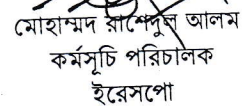 মোহাম্মদ রাশেদুল আলম
কর্মসূচি পরিচালক
ইরেসপো